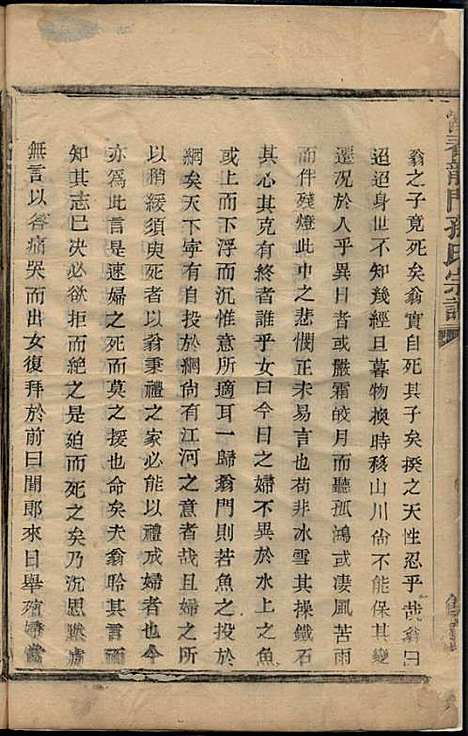 富春龍門孫氏宗譜
翁之子竟死矣翁實自死其子矣揆之天性忍乎哉翁曰
迢迢身世不知幾經旦暮物換時移山川尙不能保其變
遷况於人乎異日者或嚴霜皎月而聽孤鴻或凄風苦雨
而伴殘燈此中之悲憫正未易言也苟非冰雪其操鐵石
其心其克有終者誰乎女曰今日之婦不異於水上之魚
或上而下浮而沉惟意所適耳一歸翁門則若魚之投於
網矣天下寜有自投於網尙有江河之意者哉且婦之所
以稍緩須臾死者以翁秉禮之家必能以禮成婦者也今
亦爲此言是速婦之死而莫之援也命矣夫翁聆其言而
知其志已决必欲拒而絕之是廹而死之矣乃沉思踰
無言以答痛哭而出女復拜於前曰聞郎來日舉殯婦當